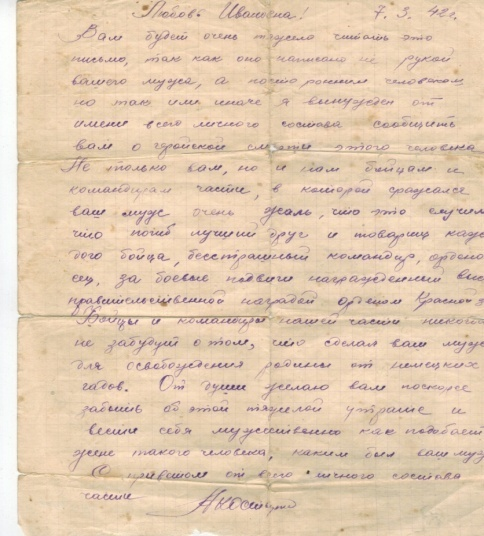 Любовь Ивановна! 7.3.42г.
Вам будет очень тяжело читать это
письмо, так как оно написано не рукой
вашего мужа, а посторонним человеком
но так или иначе я вынужден от
имени всего личного состава сообщить
вам о геройской смерти этого человека
Не только вам, но и нам бойцам и
командирам части, в которой сражался
ваш муж очень жаль, что это случи
что погиб лучший друг и товарищ каж
дого бойца, бесстрашный командир, ордено
сец, за боевые подвиги награжденный выс
правительственной наградой орденом Красной
Бойцы и командиры нашей части никогда
не забудут о том, что сделал ваш муж
для освобождения родины от немецких
гадов. От души желаю вам поскорее
забыть об этой тяжелой утрате и
вести себя мужественно как подобает
жене такого человека, каким был ваш муж
С приветом от всего личного состава
части